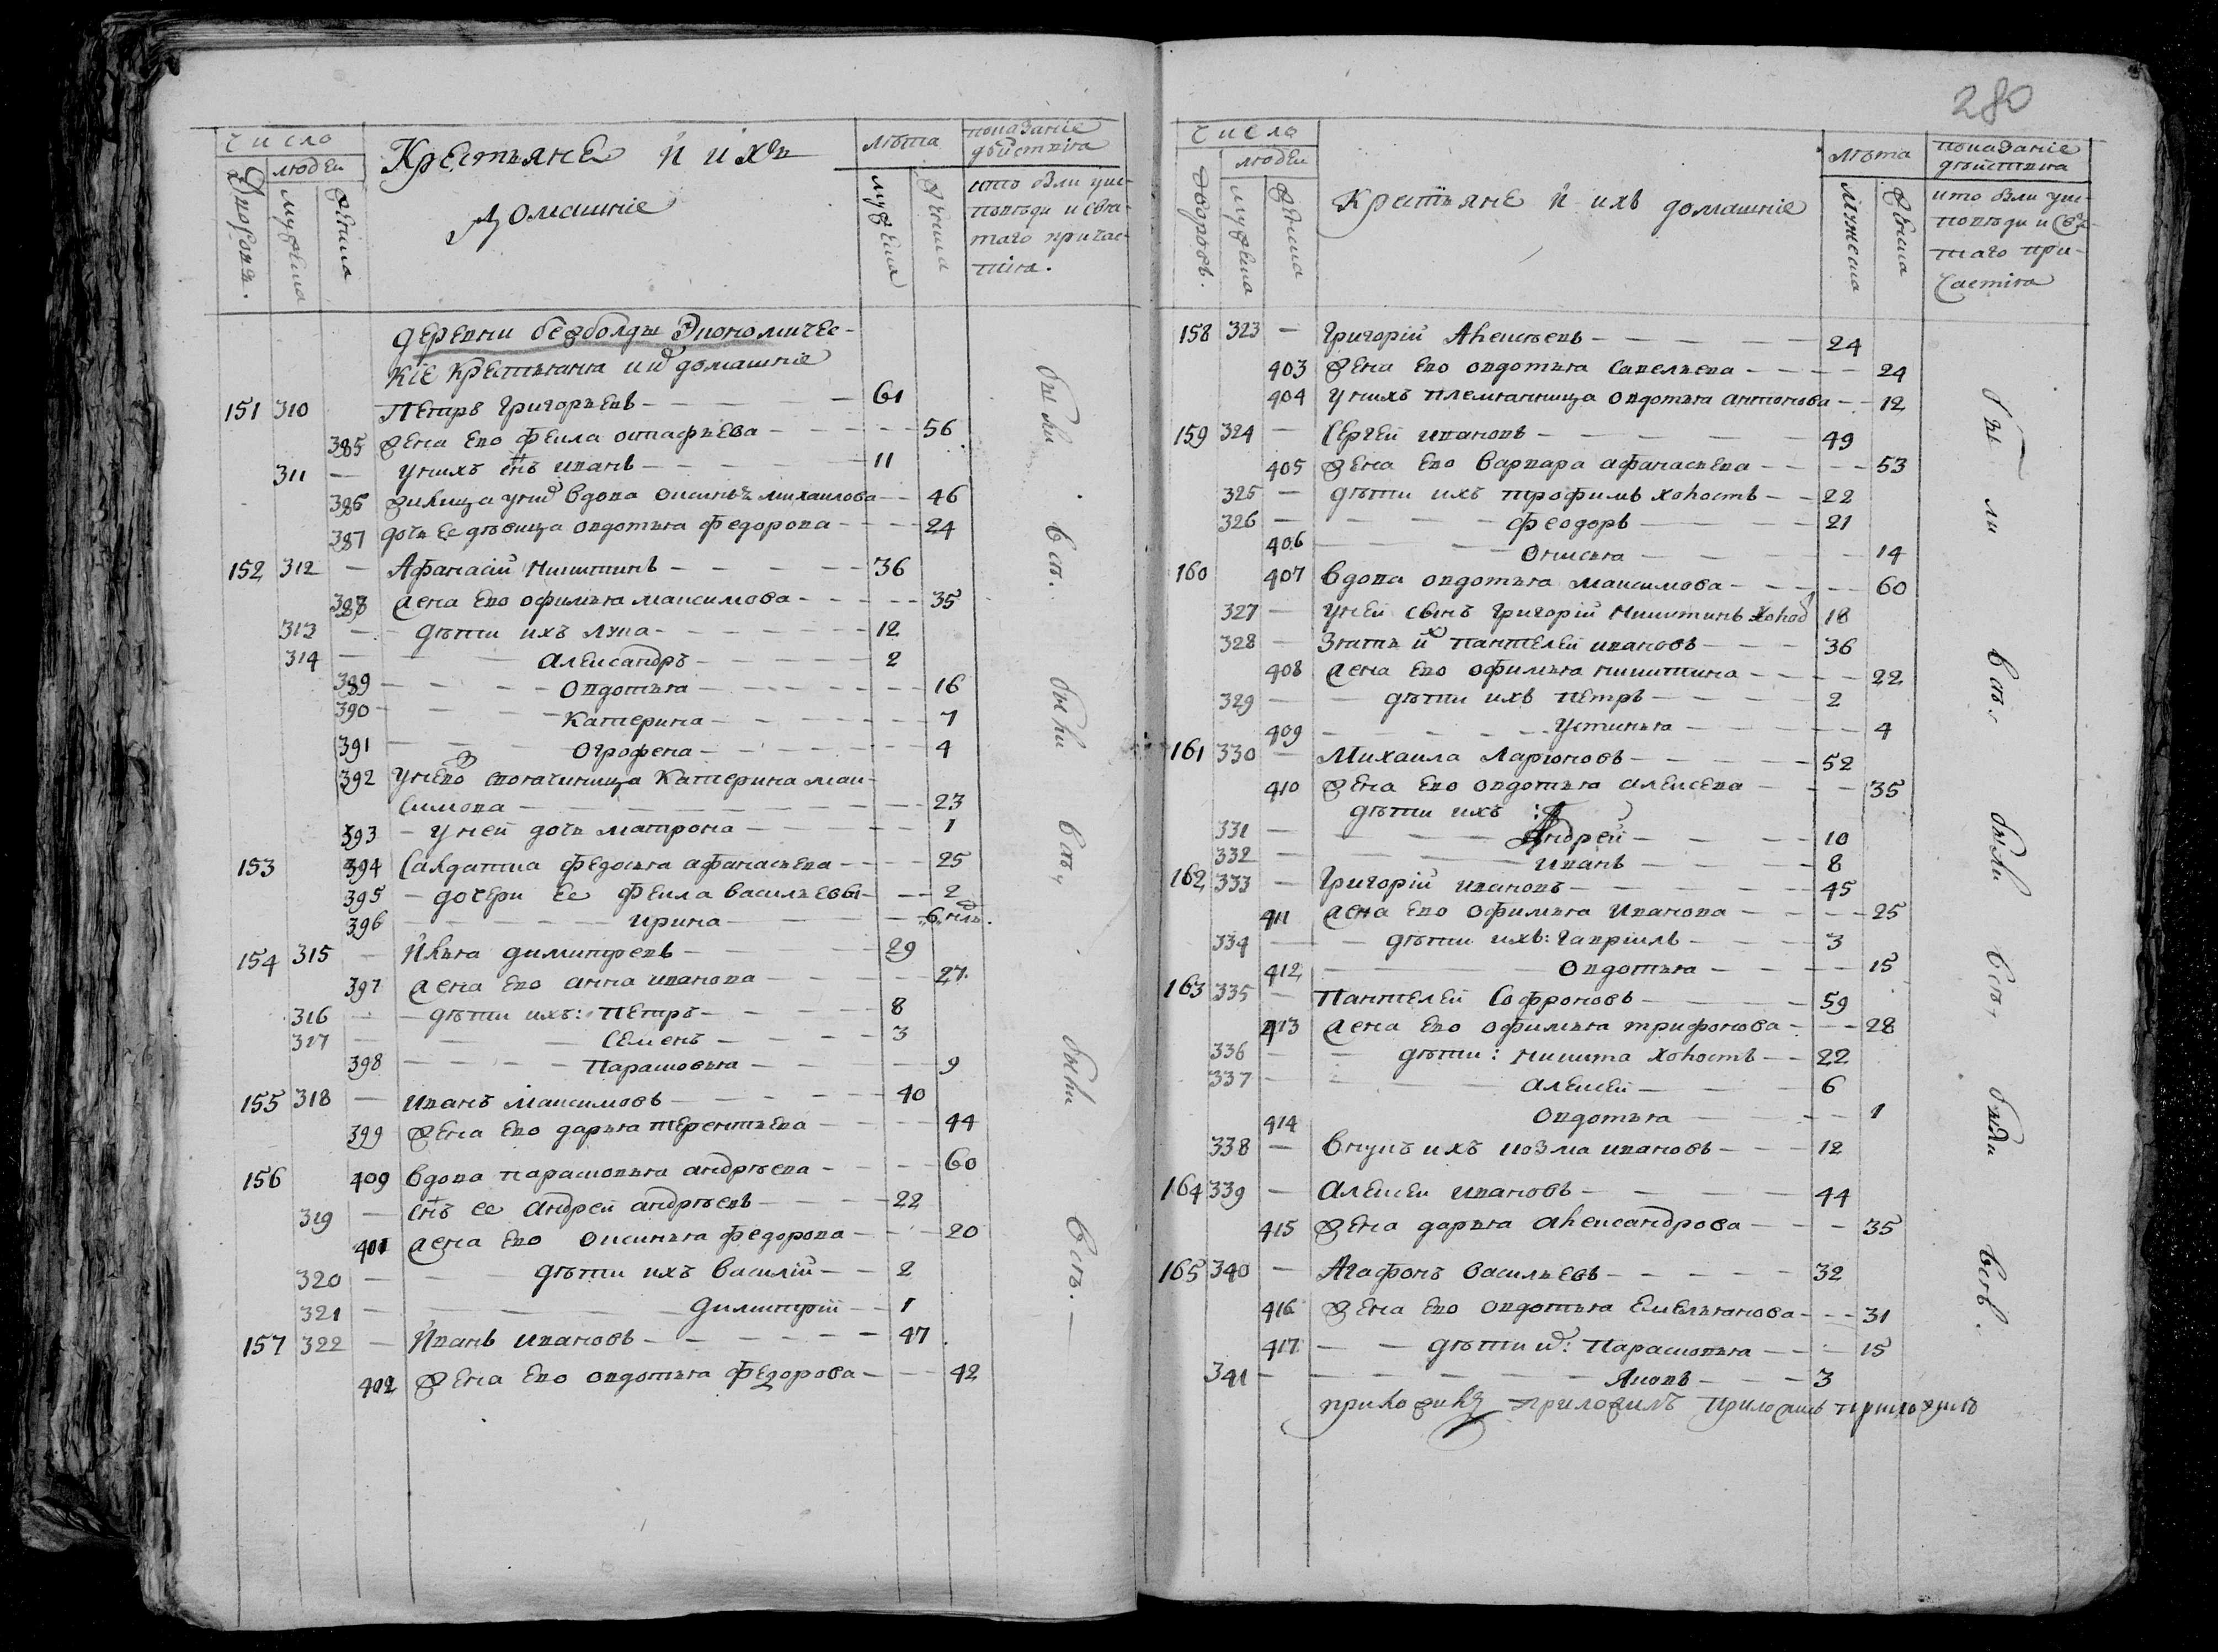 число
людеи
Дворовъ.
мужеска
женска
Крестьяне и ихъ
домашніе
лѣта
мужеска
женска
показаніе
дѣйствія
кто были у ис-
повѣди и свя-
таго причас-
тія.
деревни безболды Экономичес-
кіе крестьяня и ихъ домашніе
151 310 Петръ григорьевъ - 61
385 жена ево фекла остафьева - 56
311 - у нихъ снъ иванъ - 11
386 жилица у них вдова оксинья михаилова - 46
387 дочь ее дѣвица овдотья федорова - 24
152 312 - Афанасій никитинъ - 36
388 жена ево офимья максимова - 35
313 - дѣти ихъ лука - 12
314 - александръ - 2
389 - овдотья - 16
390 - катерина - 7
391 - огрофена - 4
392 у нево своячиница катерина мак-
симова - 23
393 - у ней дочь матрона - 1
153 394 салдатка федосья афанасьева - 25
395 - дочери ее фекла васильевы - 2
396 - ирина - 6 нед.
154 315 - илья димитревъ - 29
397 жена ево анна иванова - 27
316 - дѣти ихъ: петръ - 8
317 - семенъ - 3
398 - парасковья - 9
155 318 - иванъ максимовъ - 40
399 жена ево дарья терентьева - 44
156 409 вдова парасковья андрѣева - 60
319 - снъ ее андрей андрѣевъ - 22
401 жена ево оксинья федорова - 20
320 - дѣти ихъ василій - 2
321 - димитрій - 1
157 322 - иванъ ивановъ - 47
402 жена ево овдотья федорова - 42
были всѣ. были всѣ, были всѣ. -
280
число
людеи
дворовъ.
мужеска
женска
Крестьяне и ихъ домашніе
лѣта
мужеска
женска
показаніе
дѣйствия
кто были у ис-
повѣди и свя-
таго при-
частия
158 323 - григорій алексѣевъ - 24
403 жена ево овдотья савельева - 24
404 у нихъ племянница овдотья антонова - 12
159 324 - сергѣй ивановъ - 49
405 жена ево варвара афанасьева - 53
325 - дѣти ихъ трофимъ холостъ - 22
326 - феодоръ - 21
406 - онисья - 14
160 407 вдова овдотья максимова - 60
327 - у ней сынъ григорій никитинъ холос 18
328 - зять их пантелей ивановъ - 36
408 жена ево офимья никитина - 22
329 - дѣти ихъ петръ - 2
409 - устинья - 4
161 330 - михаила ларионовъ - 52
410 жена ево овдотья алексева - 35
дѣти ихъ :
331 - андрей - 10
332 - иванъ - 8
162 333 - григорій ивановъ - 45
411 жена ево офимья иванова - 25
334 - дѣти ихъ: гавріилъ - 3
412 - овдотья - 15
163 335 - пантелей софроновъ - 59
413 жена ево офимья трифонова - 28
336 - дѣти: никита холостъ - 22
337 - алексей - 6
414 - овдотья - 1
338 - внукъ ихъ козма ивановъ - 12
164 339 - алексеи ивановъ - 44
415 жена дарья александрова - 35
165 340 - агафонъ васильевъ - 32
416 жена ево овдотья емельянова - 31
417 - дѣти их: парасковья - 15
341 - яковъ - 3
приложилъ приложилъ приложилъ приложилъ
были всѣ. были всѣ, были всѣ.